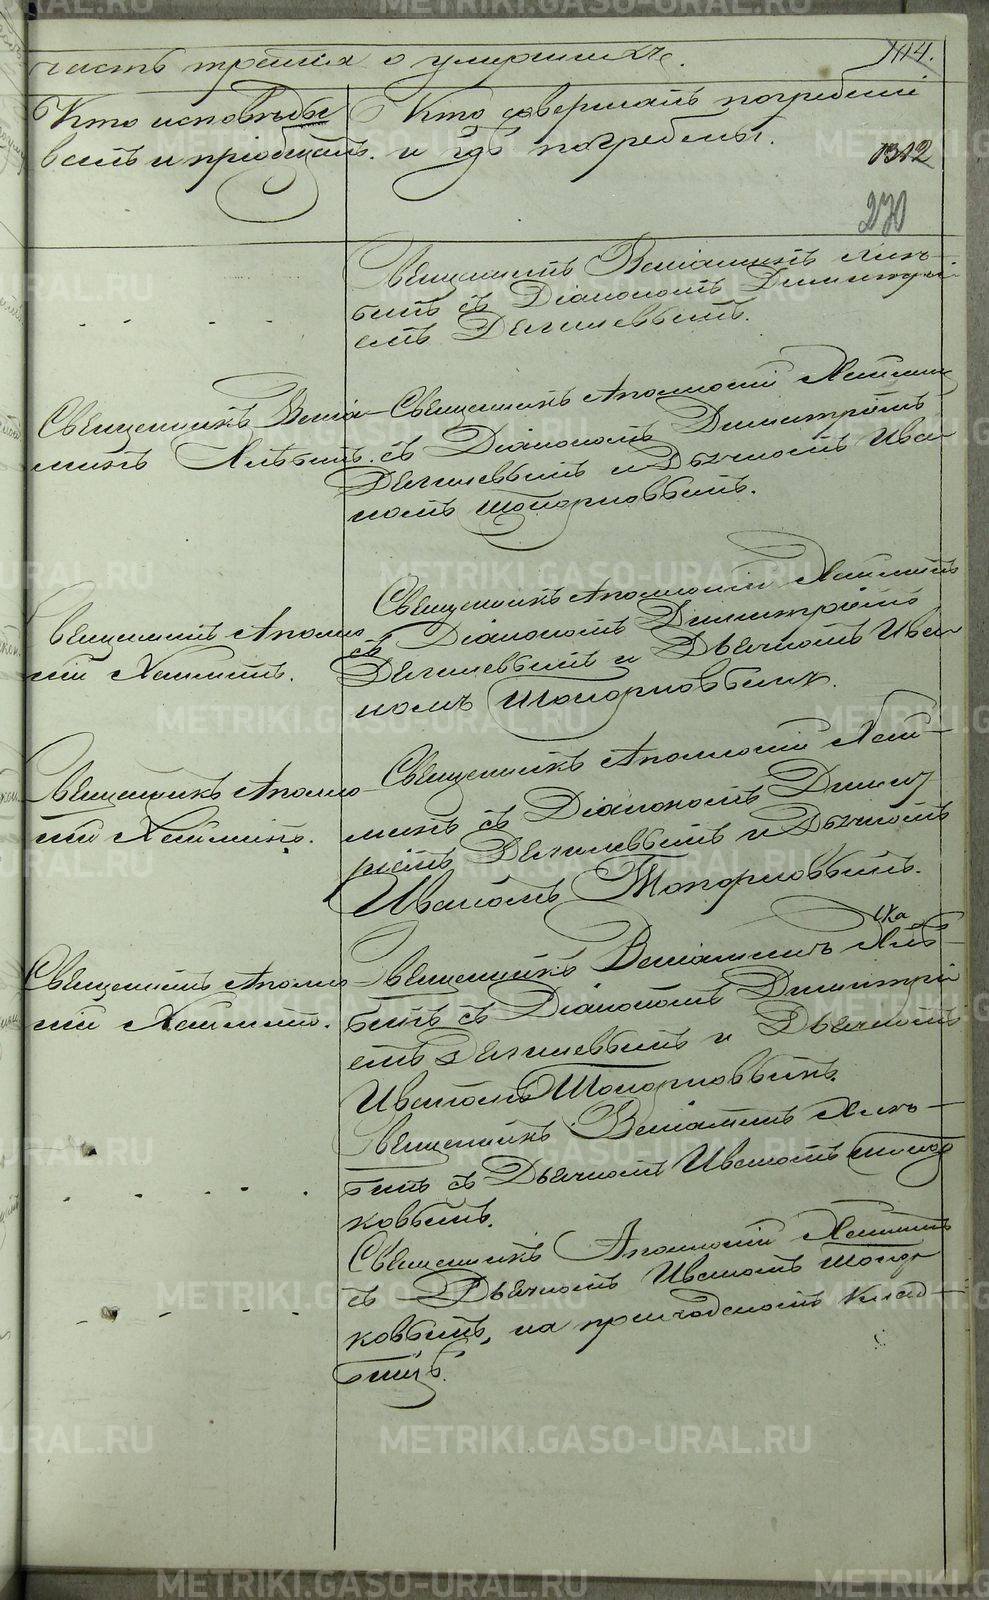 часть третья о умершихъ.
114.
Кто исповѣды
валъ и пріобщалъ.
Кто совершалъ погребеніе
и гдѣ погребены.
1312
270
Священникъ Веніаминъ Хлѣ-
бинъ съ Діакономъ Димитрі-
емъ
Священникъ Веніа-
минъ Хлѣбинъ.
Священникъ Аполлосій
съ Діакономъ Димитріемъ
и Дьячкомъ Ива-
номъ Топорковымъ.
Священникъ Аполло-
сій
Священникъ Аполлосій
съ Діакономъ Димитріемъ
и Дьячкомъ Ива-
номъ Топорковымъ.
Священникъ Аполло-
сій
Священникъ Аполлосій
съ Діакономъ Димит
ріемъ и Дьячкомъ
Иваномъ Топорковымъ.
Священникъ Аполло-
сій
Священникъ Веніаминъ Хлѣ-
бинъ съ Діакономъ Димитрі
емъ и Дьячкомъ
Иваномъ Топорковымъ.
Священникъ Веніаминъ Хлѣ-
бинъ съ Дьячкомъ Иваномъ Топор
ковымъ.
Священникъ Аполлосій
съ Дьячкомъ Иваномъ Топор
ковымъ, на приходскомъ клад-
бищѣ.
METRIKI.GASO-URAL.RU